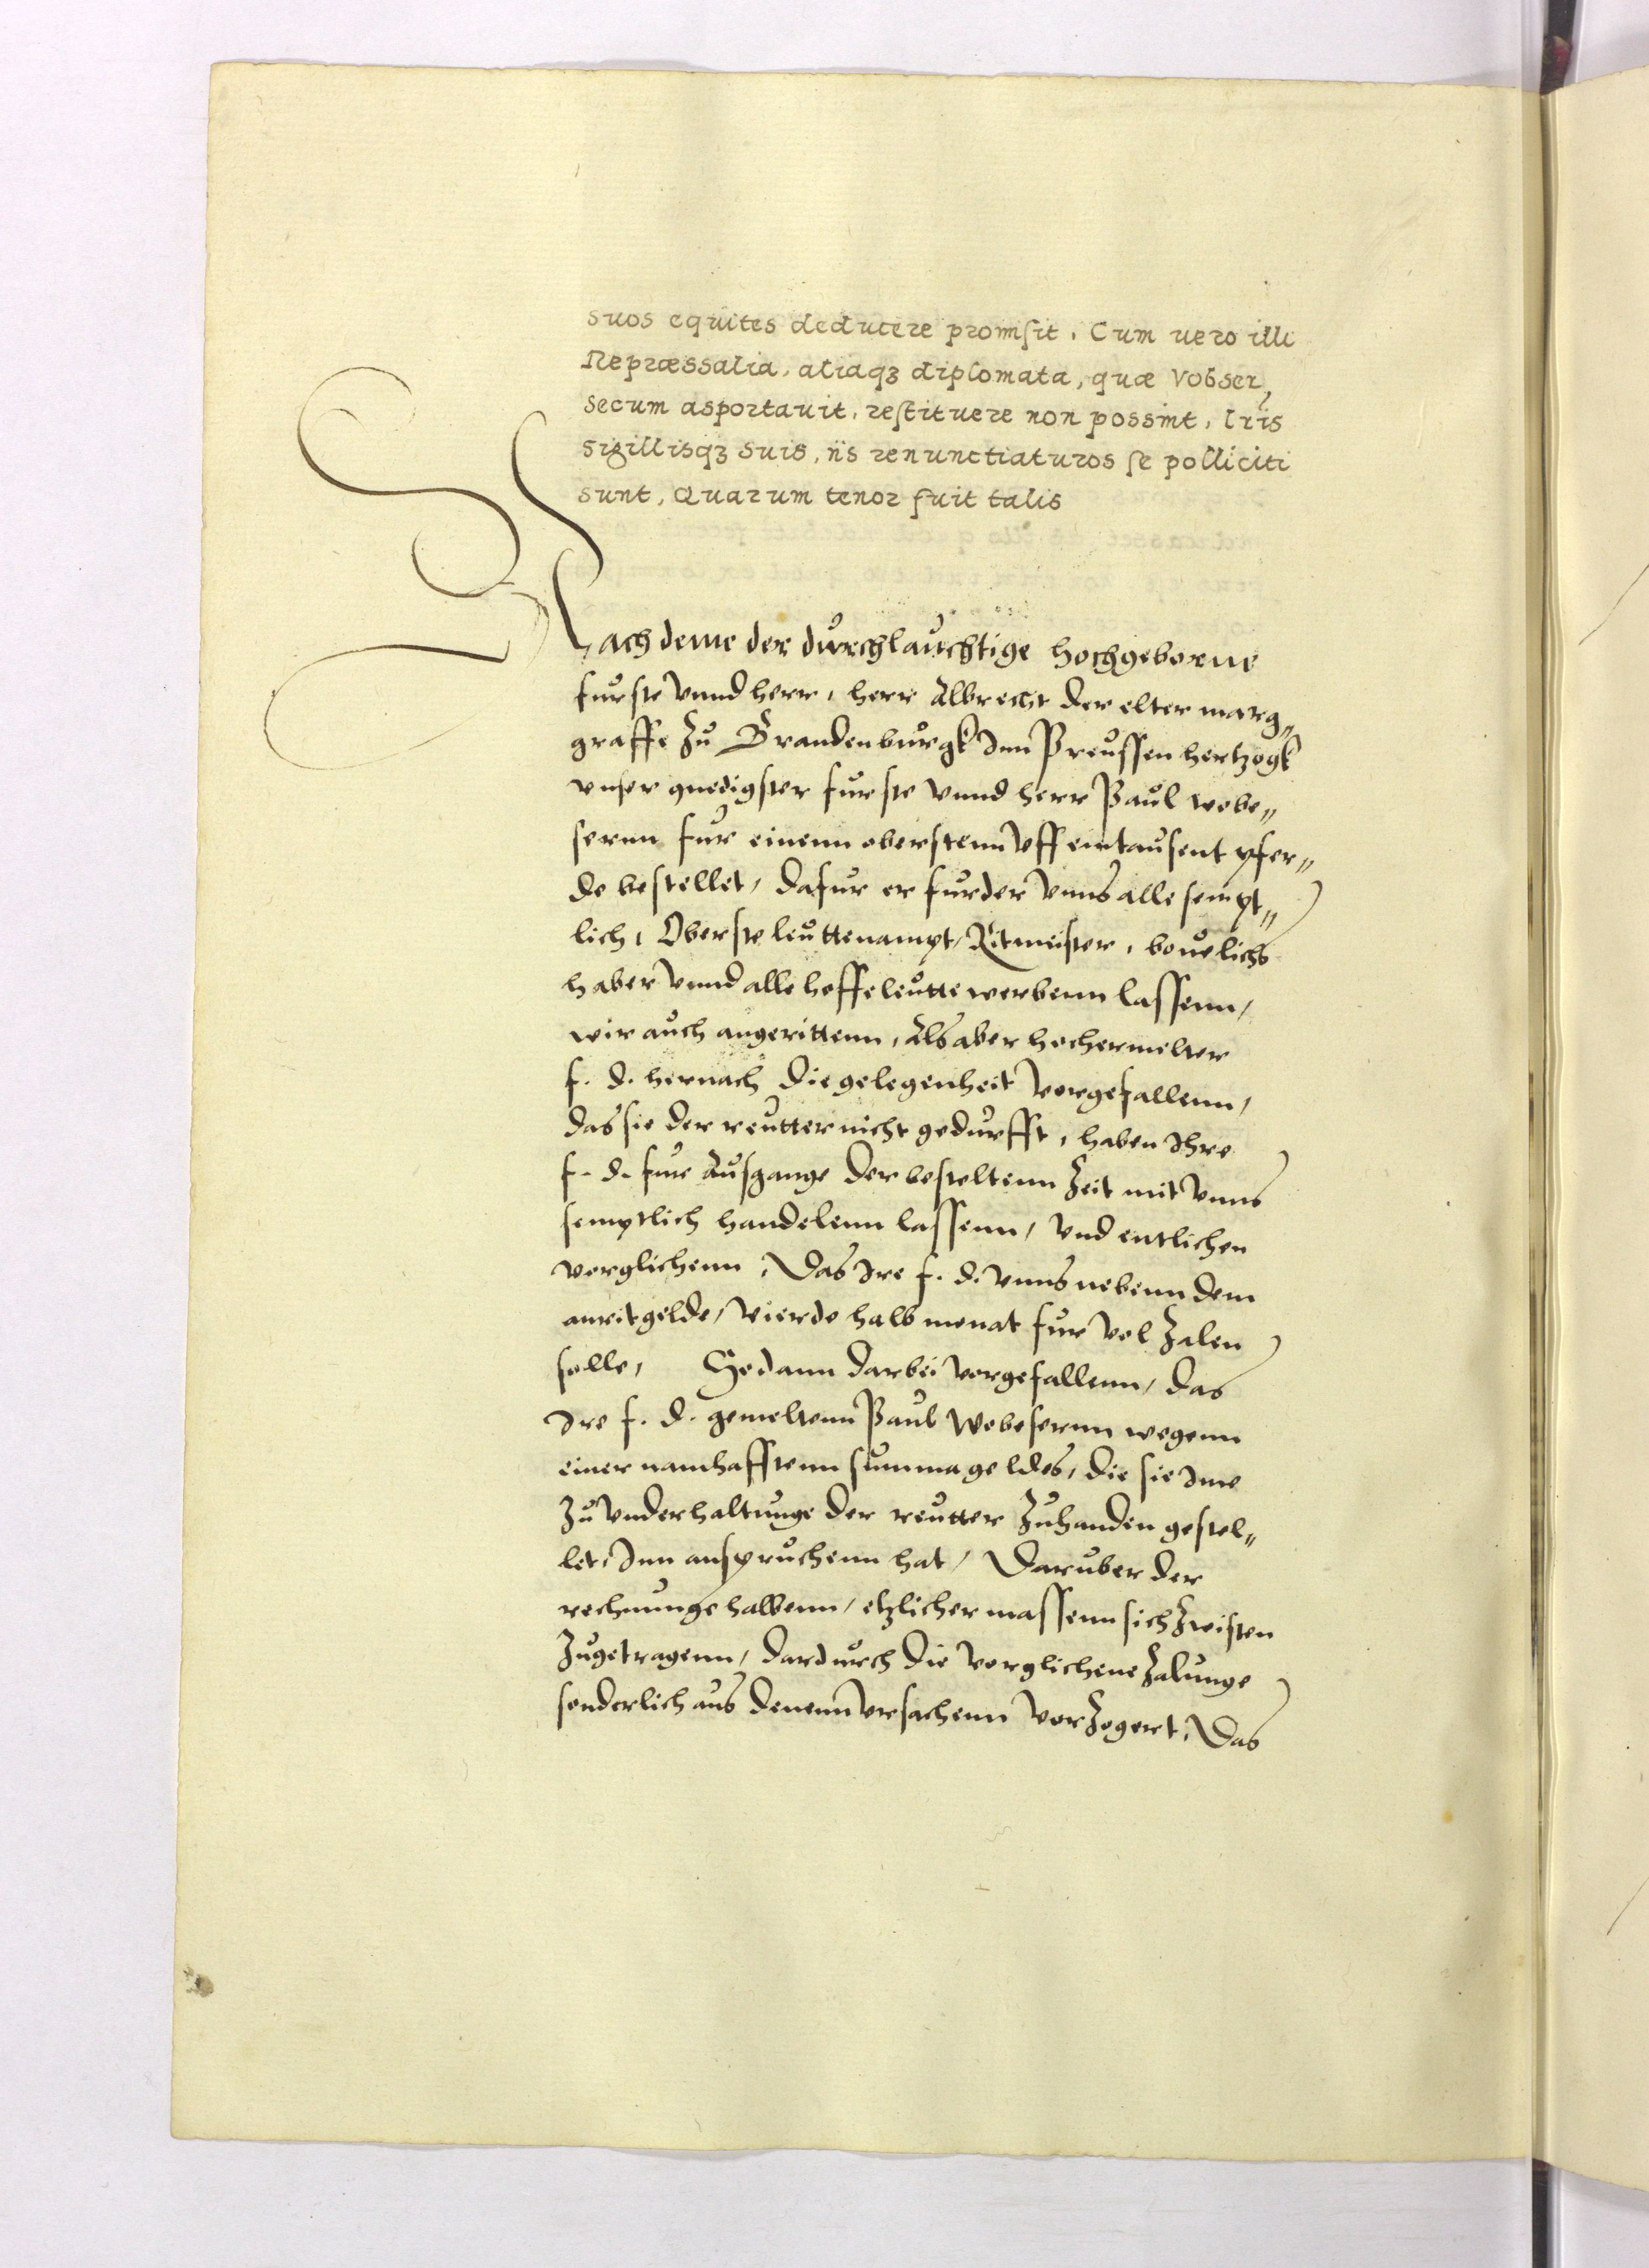 suos equites deducere promisit. Cum uero illi
Repræssalia, aliaqꝫ diplomata, quæ Vobser,
secum asportauit, restituere non possint, lris
sigillisqꝫ suis, iis renunctiaturos se polliciti
sunt, Quarum tenor fuit talis
Nachdeme der durchlauchtige hochgeborne
furste vnnd herr, herr Albrecht der elter marg„
graffe zu Brandenburgk Inn Preussen hertzogk
vnser gnedigster furste vnnd herr Paul wobe„
sernn fur einenn oberstenn vff eintausent pfer„
de bestellet, dafur er furder vnns alle sempt„
lich, Oberste leuttenampt, Ritmeister, beuelichs
haber vnnd alle hoffeleutte werbenn lassenn,
wir auch angerittenn, Als aber hochermelter
f. d. hernach die gelegenheit vorgefallenn,
das sie der reutter nicht gedurfft, haben Ihre
f. d. fur Ausgange der besteltenn Zeit mit vnns
semptlich handelenn lassenn, vnd entlichen
verglichenn, Das Ire f. d. vnns nebenn dem
anritgelde, vierde halb monat fur vol Zalen
solle, Sodann darbei vorgefallenn, das
Ire f. d. gemeltenn Paul Wobesernn wegenn
einer namhafftenn summa geldes, die sie Ime
Zu vnderhaltunge der reutter Zuhanden gestel„
let, Inn anspruchenn hat, Daruber der
rechnunge halbenn, etzlicher massenn sich Zwisten
Zugetragenn, dardurch die vorglichene Zalunge
sonderlich aus denenn vrsachenn vorZogert, Das